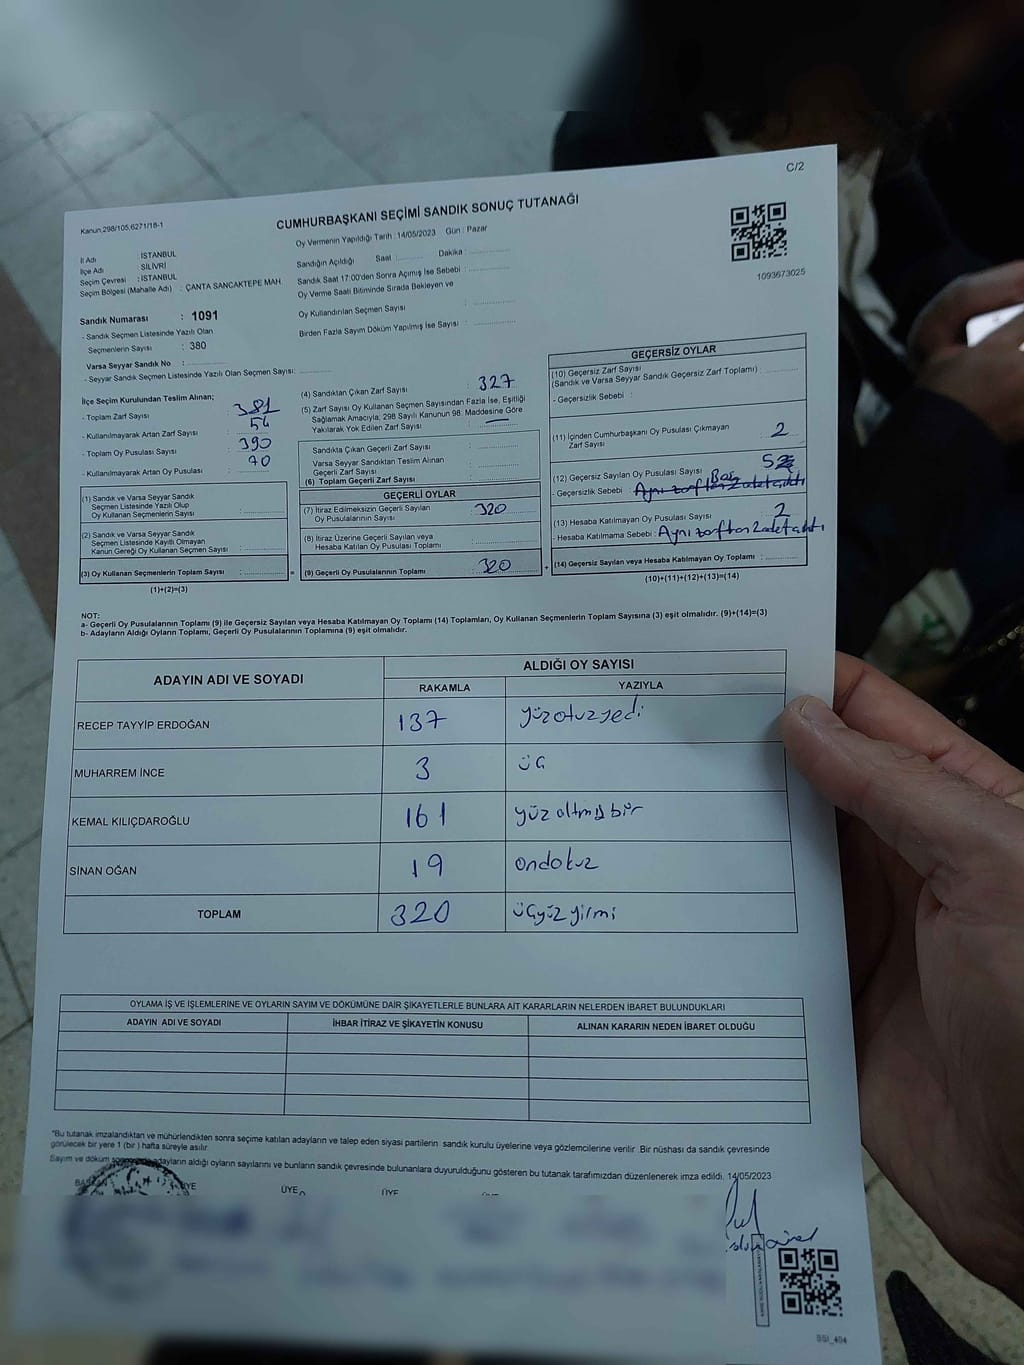 C/2
Kanun,298/105,6271/18-1
CUMHURBAŞKANI SEÇİMİ SANDIK SONUÇ TUTANAĞI
Oy Vermenin Yapıldığı Tarih : 14/05/2023 Gün : Pazar
1093673025
İl Adı : İSTANBUL
İlçe Adı : SİLİVRİ
Seçim Çevresi : İSTANBUL
Seçim Bölgesi (Mahalle Adı) : ÇANTA SANCAKTEPE MAH.
Sandığın Açıldığı Saat : Dakika :
Sandık Saat 17:00'den Sonra Açımış İse Sebebi :
Oy Verme Saati Bitiminde Sırada Bekleyen ve
Oy Kullandırılan Seçmen Sayısı :
Birden Fazla Sayım Döküm Yapılmış İse Sayısı :
Sandık Numarası : 1091
- Sandık Seçmen Listesinde Yazılı Olan
Seçmenlerin Sayısı : 380
Varsa Seyyar Sandık No :
- Seyyar Sandık Seçmen Listesinde Yazılı Olan Seçmen Sayısı:
İlçe Seçim Kurulundan Teslim Alınan;
- Toplam Zarf Sayısı : 381
- Kullanılmayarak Artan Zarf Sayısı : 54
- Toplam Oy Pusulası Sayısı : 390
- Kullanılmayarak Artan Oy Pusulası : 70
(1) Sandık ve Varsa Seyyar Sandık
Seçmen Listesinde Yazılı Olup
Oy Kullanan Seçmenlerin Sayısı :
(2) Sandık ve Varsa Seyyar Sandık
Seçmen Listesinde Kayıtlı Olmayan
Kanun Gereği Oy Kullanan Seçmen Sayısı :
(3) Oy Kullanan Seçmenlerin Toplam Sayısı :
(1)+(2)=(3)
(4) Sandıktan Çıkan Zarf Sayısı : 327
(5) Zarf Sayısı Oy Kullanan Seçmen Sayısından Fazla İse, Eşitliği
Sağlamak Amacıyla; 298 Sayılı Kanunun 98. Maddesine Göre
Yakılarak Yok Edilen Zarf Sayısı : —
Sandıkta Çıkan Geçerli Zarf Sayısı :
Varsa Seyyar Sandıktan Teslim Alınan
Geçerli Zarf Sayısı :
(6) Toplam Geçerli Zarf Sayısı :
GEÇERLİ OYLAR
(7) İtiraz Edilmeksizin Geçerli Sayılan
Oy Pusulalarının Sayısı : 320
(8) İtiraz Üzerine Geçerli Sayılan ve
Hesaba Katılan Oy Pusulası Toplamı :
(9) Geçerli Oy Pusulalarının Toplamı : 320
GEÇERSİZ OYLAR
(10) Geçersiz Zarf Sayısı
(Sandık ve Varsa Seyyar Sandık Geçersiz Zarf Toplamı) :
- Geçersizlik Sebebi :
(11) İçinden Cumhurbaşkanı Oy Pusulası Çıkmayan
Zarf Sayısı : 2
(12) Geçersiz Sayılan Oy Pusulası Sayısı : 5
- Geçersizlik Sebebi : Boş
(13) Hesaba Katılmayan Oy Pusulası Sayısı : 2
- Hesaba Katılmama Sebebi : Aynı zarftan 2 adet çıktı
(14) Geçersiz Sayılan veya Hesaba Katılmayan Oy Toplamı :
(10)+(11)+(12)+(13)=(14)
NOT:
a- Geçerli Oy Pusulalarının Toplamı (9) ile Geçersiz Sayılan veya Hesaba Katılmayan Oy Toplamı (14) Toplamları, Oy Kullanan Seçmenlerin Toplam Sayısına (3) eşit olmalıdır. (9)+(14)=(3)
b- Adayların Aldığı Oyların Toplamı, Geçerli Oy Pusulalarının Toplamına (9) eşit olmalıdır.
ADAYIN ADI VE SOYADI
ALDIĞI OY SAYISI
RAKAMLA YAZIYLA
RECEP TAYYİP ERDOĞAN 137 yüzotuzyedi
MUHARREM İNCE 3 üç
KEMAL KILIÇDAROĞLU 161 yüz altmış bir
SİNAN OĞAN 19 ondokuz
TOPLAM 320 üçyüz yirmi
OYLAMA İŞ VE İŞLEMLERİNE VE OYLARIN SAYIM VE DÖKÜMÜNE DAİR ŞİKAYETLERLE BUNLARA AİT KARARLARIN NELERDEN İBARET BULUNDUKLARI
ADAYIN ADI VE SOYADI İHBAR İTİRAZ VE ŞİKAYETİN KONUSU ALINAN KARARIN NEDEN İBARET OLDUĞU
*Bu tutanak imzalandıktan ve mühürlendikten sonra seçime katılan adayların ve talep eden siyasi partilerin sandık kurulu üyelerine veya gözlemcilerine verilir. Bir nüshası da sandık çevresinde
görülecek bir yere 1 (bir ) hafta süreyle asılır.
Sayım ve döküm adayların aldığı oyların sayılarını ve bunların sandık çevresinde bulunanlara duyurulduğunu gösteren bu tutanak tarafımızdan düzenlenerek imza edildi. 14/05/2023
ÜYE ÜYE ÜYE
SSI_494